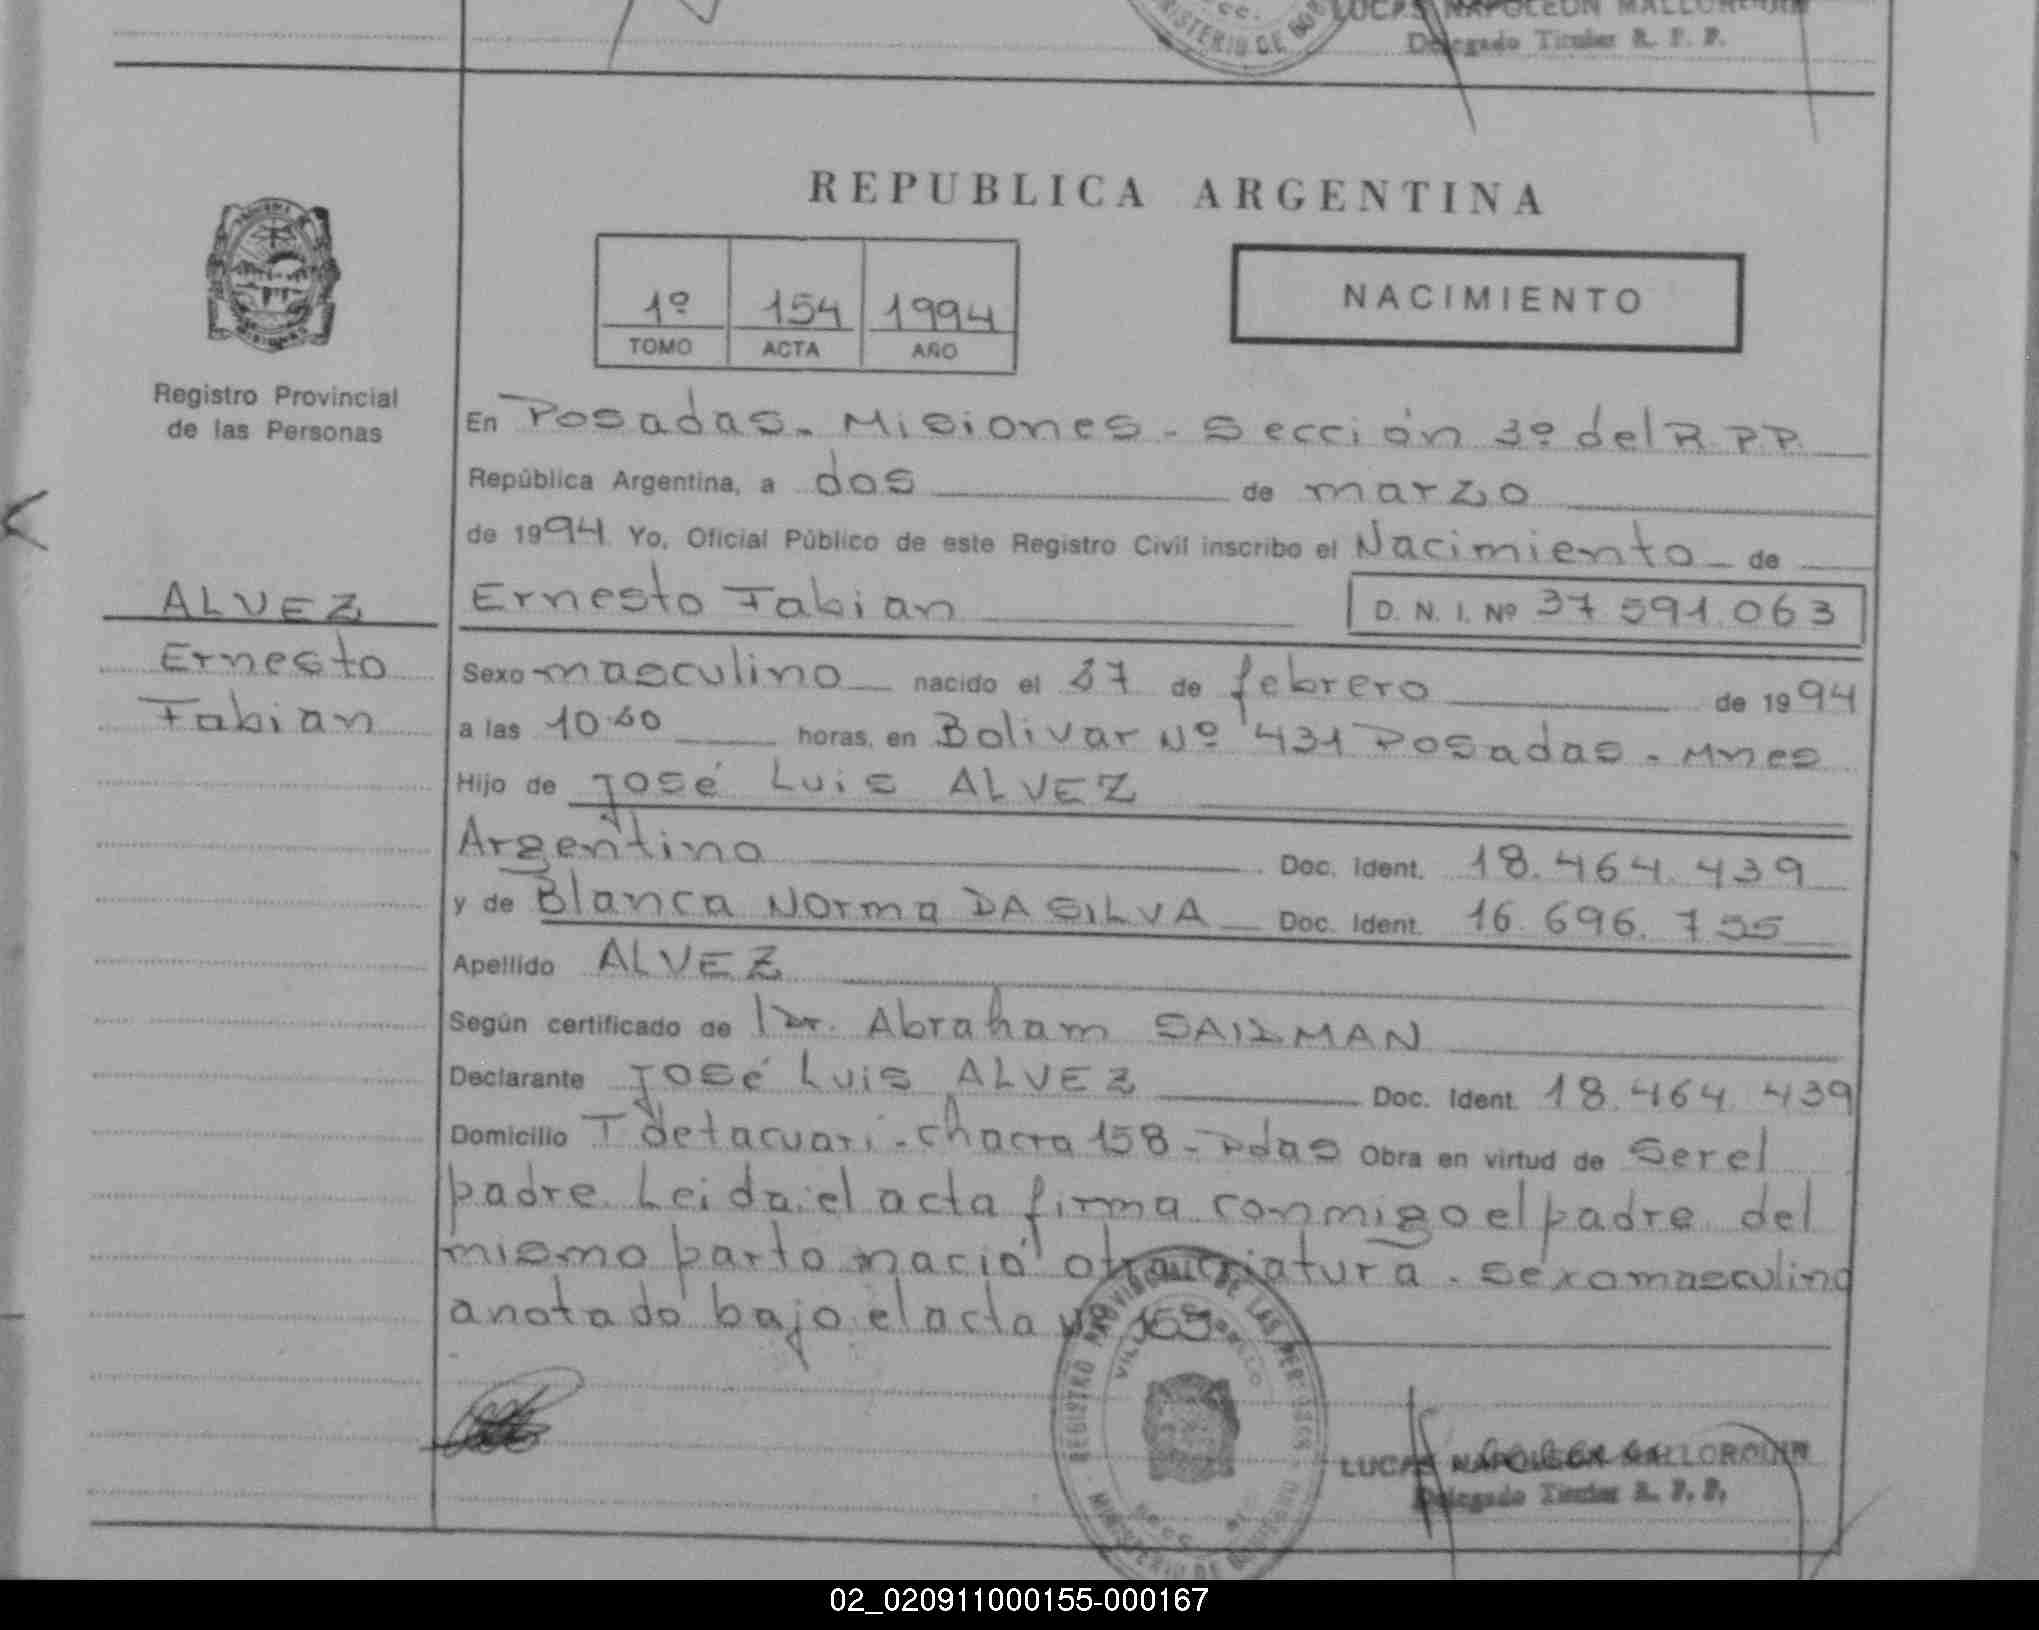 LUCAS NAPOLEON MALLORQUIN
Delegado Titular R. P. P.
REPUBLICA ARGENTINA
1º 154 1994
TOMO ACTA AÑO
NACIMIENTO
Registro Provincial
de las Personas
En Posadas - Misiones - Sección 3º del R.P.P.
República Argentina, a dos de marzo
de 1994 Yo, Oficial Público de este Registro Civil inscribo el Nacimiento de
ALVEZ
Ernesto
Fabian
Ernesto Fabian D. N. I. Nº 37 591.063
Sexo masculino nacido el de febrero de 1994
a las horas, en Bolivar Nº 431 Posadas - Mnes
Hijo de José Luis ALVEZ
Argentino Doc. Ident. 18.464.439
y de Blanca Norma DA SILVA Doc. Ident. 16.696.755
Apellido ALVEZ
Según certificado de Dr. Abraham
Declarante José Luis ALVEZ Doc. Ident. 18.464.439
Domicilio Tdetacuari - chacra 158 - Pdas Obra en virtud de ser el
padre. Leida el acta firma conmigo el padre. del
mismo parto nació otra criatura. sexo masculino
anotado bajo el acta Nº
REGISTRO PROVINCIAL DE LAS PERSONAS
MINISTERIO DE GOBIERNO
LUCAS NAPOLEON MALLORQUIN
Delegado Titular R. P. P.
02_020911000155-000167